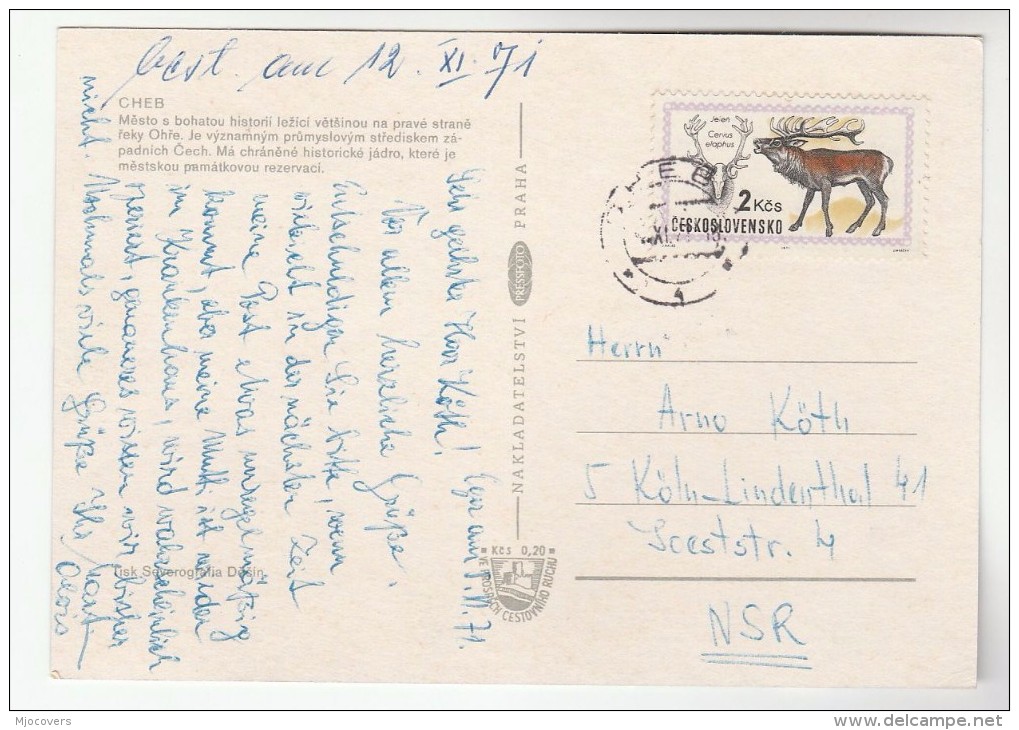 best. am 12. XI. 71
CHEB
Město s bohatou historií ležící většinou na pravé straně
řeky Ohře. Je významným průmyslovým střediskem zá-
padních Čech. Má chráněné historické jádro, které je
městskou památkovou rezervací.
Eger am 1. 11. 71.
Sehr geehrter Herr Köth!
Vor allem herzliche Grüße.
Entschuldigen Sie bitte, wenn
vielleicht in der nächsten Zeit
meine Post etwas unregelmäßig
kommt, aber meine Mutti ist wieder
im Krankenhaus, wird wahrscheinlich
operiert, genaueres wissen wir bisher
nicht. Nochmals viele Grüße Ihr
Alois
Tisk Severografia Děčín
NAKLADATELSTVÍ PRESSFOTO PRAHA
Kčs 0,20
VE PROSPĚCH CESTOVNÍHO RUCHU
Jelen
Cervus
elaphus
2 Kčs
ČESKOSLOVENSKO
CHEB
XI. 71
4
Herrn
Arno Köth
5 Köln-Lindenthal 41
Soeststr. 4
NSR
Mjocovers
delcampe.net